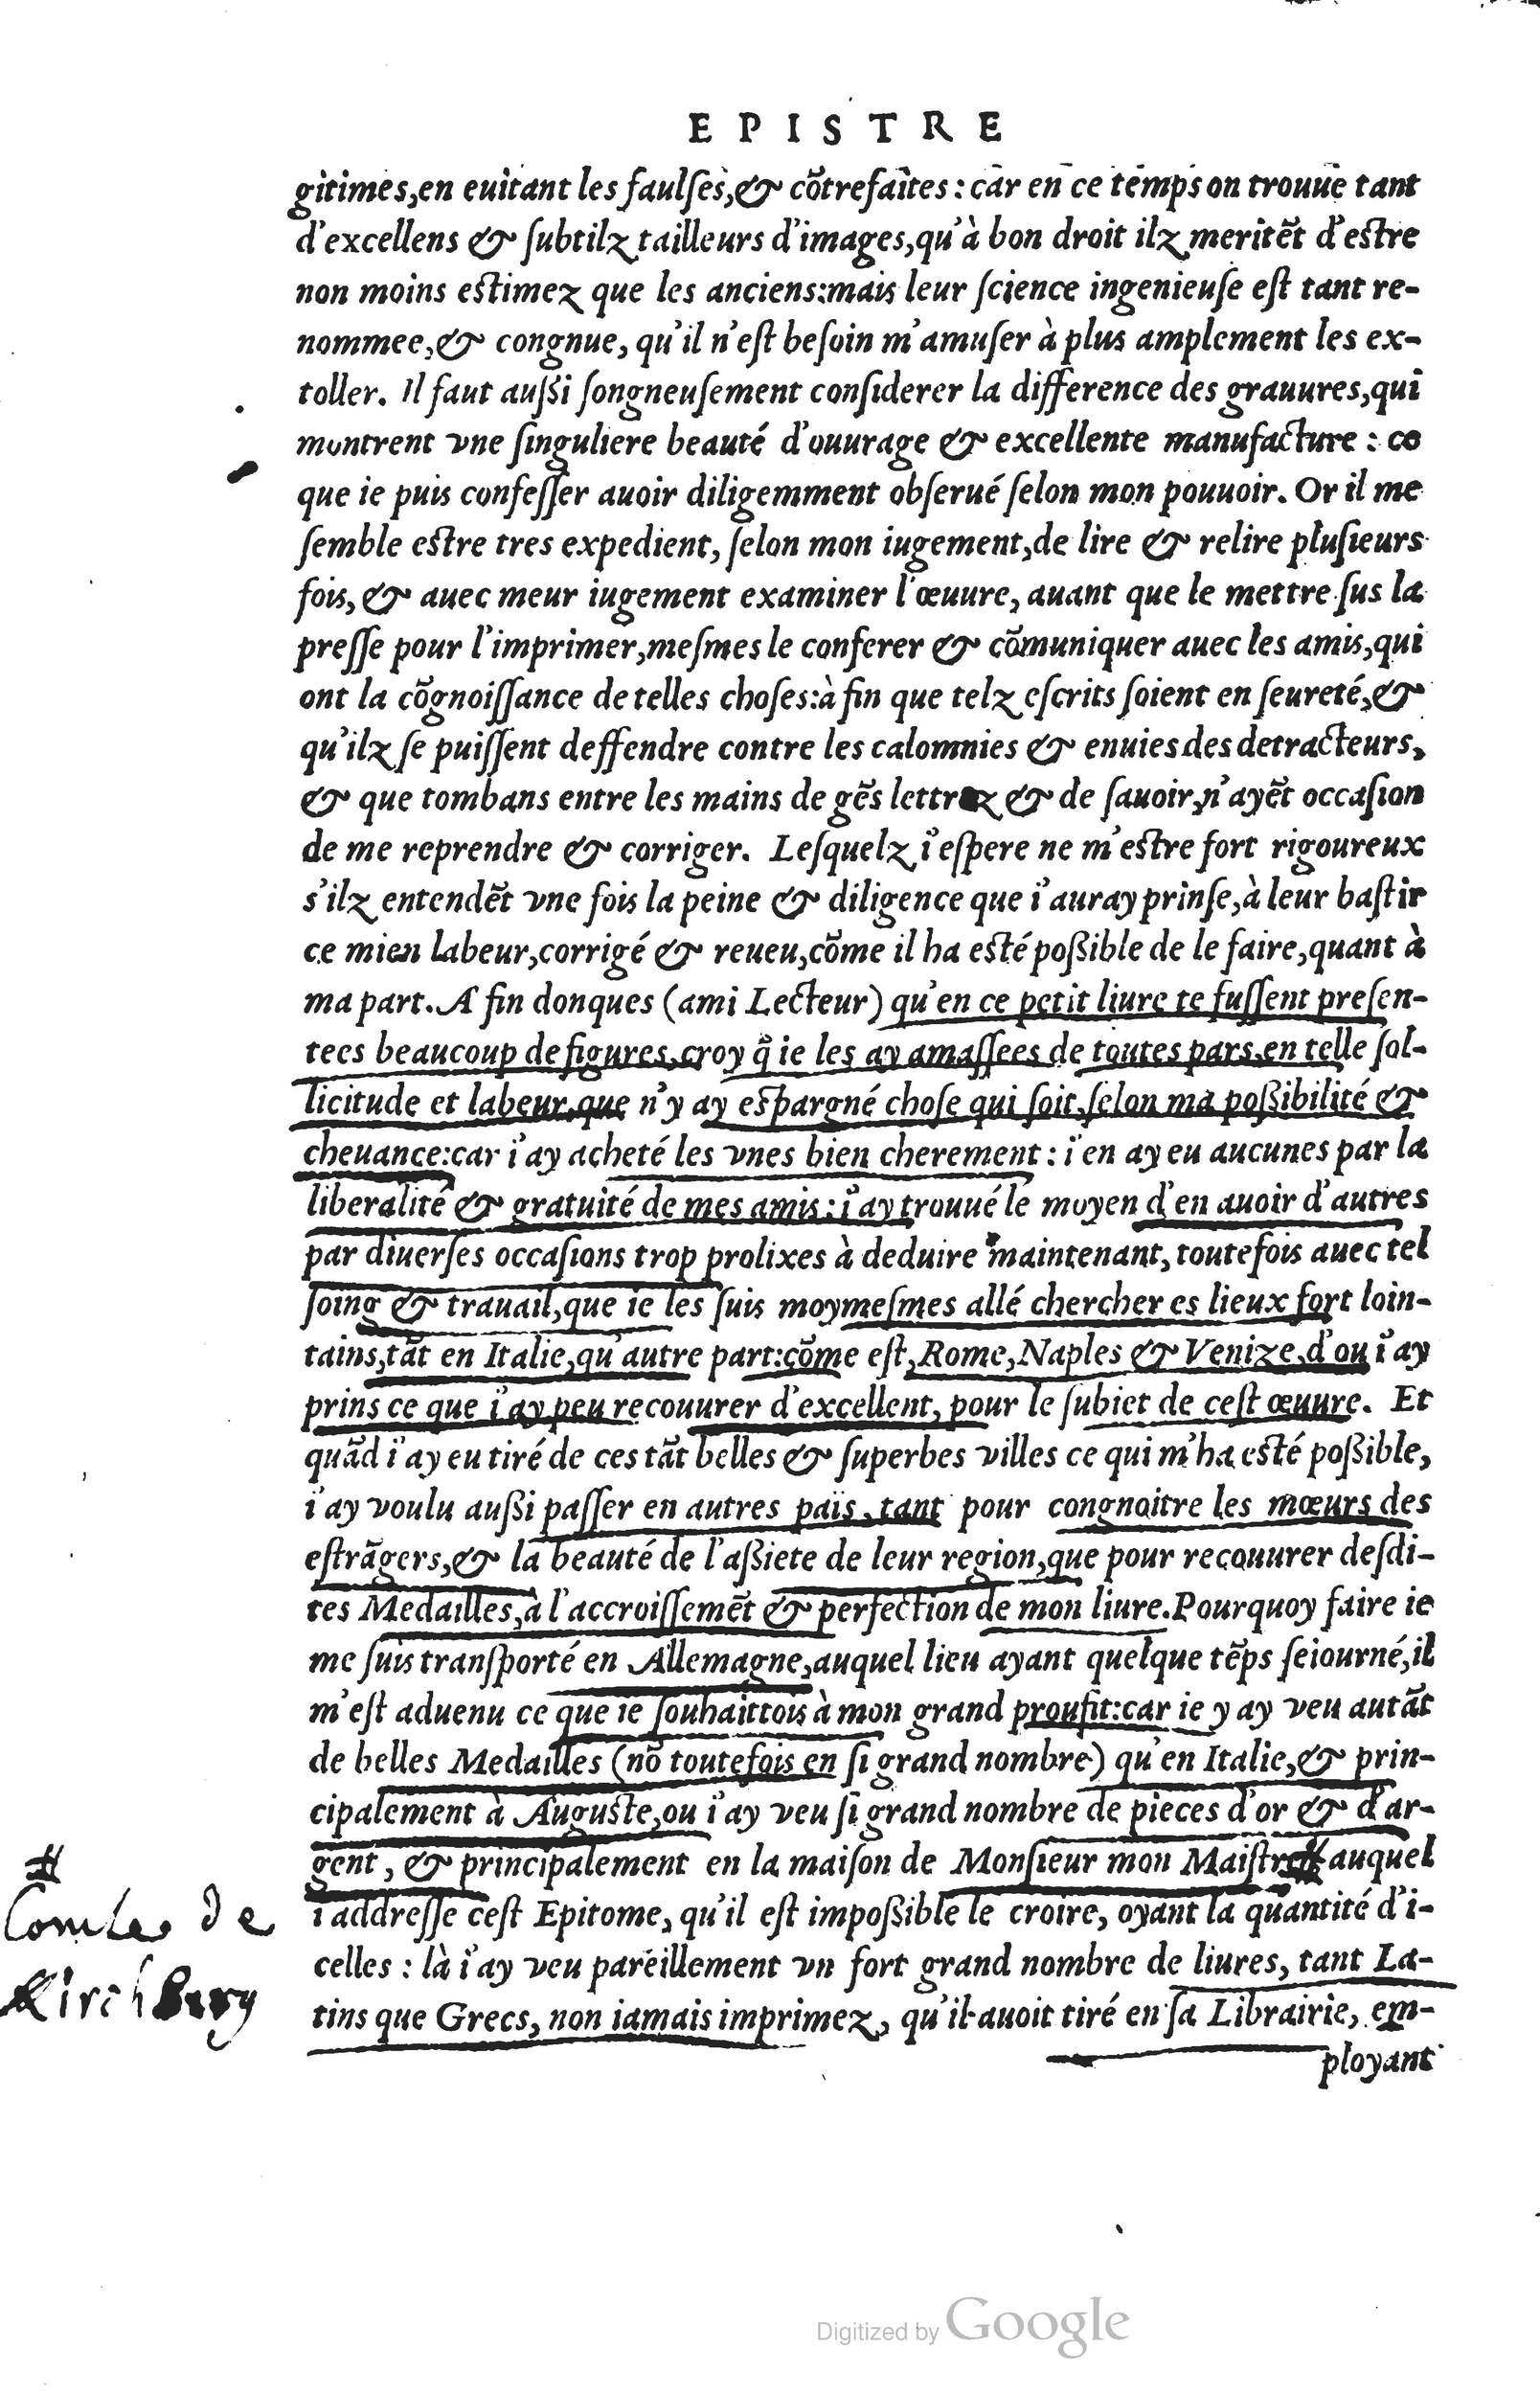 EPISTRE
gitimes,en euitant les faulſes,& cõtrefaites : car en ce temps on trouue tant
d'excellens & ſubtilz tailleurs d'images,qu'à bon droit ilz meritẽt d'estre
non moins estimez que les anciens:mais leur ſcience ingenieuſe eſt tant re-
nommee,& congnue, qu'il n'eſt beſoin m'amuſer à plus amplement les ex-
toller. Il faut auſſi ſongneuſement conſiderer la difference des grauures,qui
montrent vne ſinguliere beauté d'ouurage & excellente manufacture : ce
que ie puis confeſſer auoir diligemment obſerué ſelon mon pouuoir. Or il me
ſemble estre tres expedient, ſelon mon iugement,de lire & relire pluſieurs
fois, & auec meur iugement examiner l'œuure, auant que le mettre ſus la
preſſe pour l'imprimer,meſmes le conferer & cõmuniquer auec les amis,qui
ont la cõgnoiſſance de telles choſes:à fin que telz eſcrits ſoient en ſeureté,&
qu'ilz ſe puiſſent deffendre contre les calomnies & enuies des detracteurs,
& que tombans entre les mains de gẽs lettrez & de ſauoir,n'ayẽt occaſion
de me reprendre & corriger. Leſquelz i'eſpere ne m'estre fort rigoureux
s'ilz entendẽt vne fois la peine & diligence que i'auray prinſe,à leur baſtir
ce mien labeur,corrigé & reueu,cõme il ha esté poßible de le faire,quant à
ma part. A fin donques (ami Lecteur) qu'en ce petit liure te fuſſent preſen-
tees beaucoup de figures,croy q̃ ie les ay amaſſees de toutes pars,en telle ſol-
licitude et labeur,que n'y ay eſpargné choſe qui ſoit,ſelon ma poßibilité &
cheuance:car i'ay acheté les vnes bien cherement : i'en ay eu aucunes par la
liberalité & gratuité de mes amis : i'ay trouué le moyen d'en auoir d'autres
par diuerſes occaſions trop prolixes à deduire maintenant, toutefois auec tel
ſoing & trauail,que ie les ſuis moymeſmes allé chercher es lieux fort loin-
tains,tãt en Italie,qu'autre part:cõme eſt, Rome, Naples & Venize,d'ou i'ay
prins ce que i'ay peu recouurer d'excellent, pour le ſubiet de ceſt œuure. Et
quãd i'ay eu tiré de ces tãt belles & ſuperbes villes ce qui m'ha esté poßible,
i'ay voulu außi paſſer en autres païs, tant pour congnoitre les mœurs des
eſtrãgers,& la beauté de l'aßiete de leur region,que pour recouurer deſdi-
tes Medailles,à l'accroiſſemẽt & perfection de mon liure.Pourquoy faire ie
me ſuis tranſporté en Allemagne,auquel lieu ayant quelque tẽps ſeiourné,il
m'eſt aduenu ce que ie ſouhaittois à mon grand proufit:car ie y ay veu autãt
de belles Medailles (nõ toutefois en ſi grand nombre) qu'en Italie,& prin-
cipalement à Auguſte,ou i'ay veu ſi grand nombre de pieces d'or & d'ar-
gent, & principalement en la maiſon de Monſieur mon Maiſtre # auquel
i'addreſſe ceſt Epitome, qu'il eſt impoßible le croire, oyant la quantité d'i-
celles : là i'ay veu pareillement vn fort grand nombre de liures, tant La-
tins que Grecs, non iamais imprimez, qu'il auoit tiré en ſa Librairie, em-
ployant
#
Comte de
Kirchberg
Digitized by Google